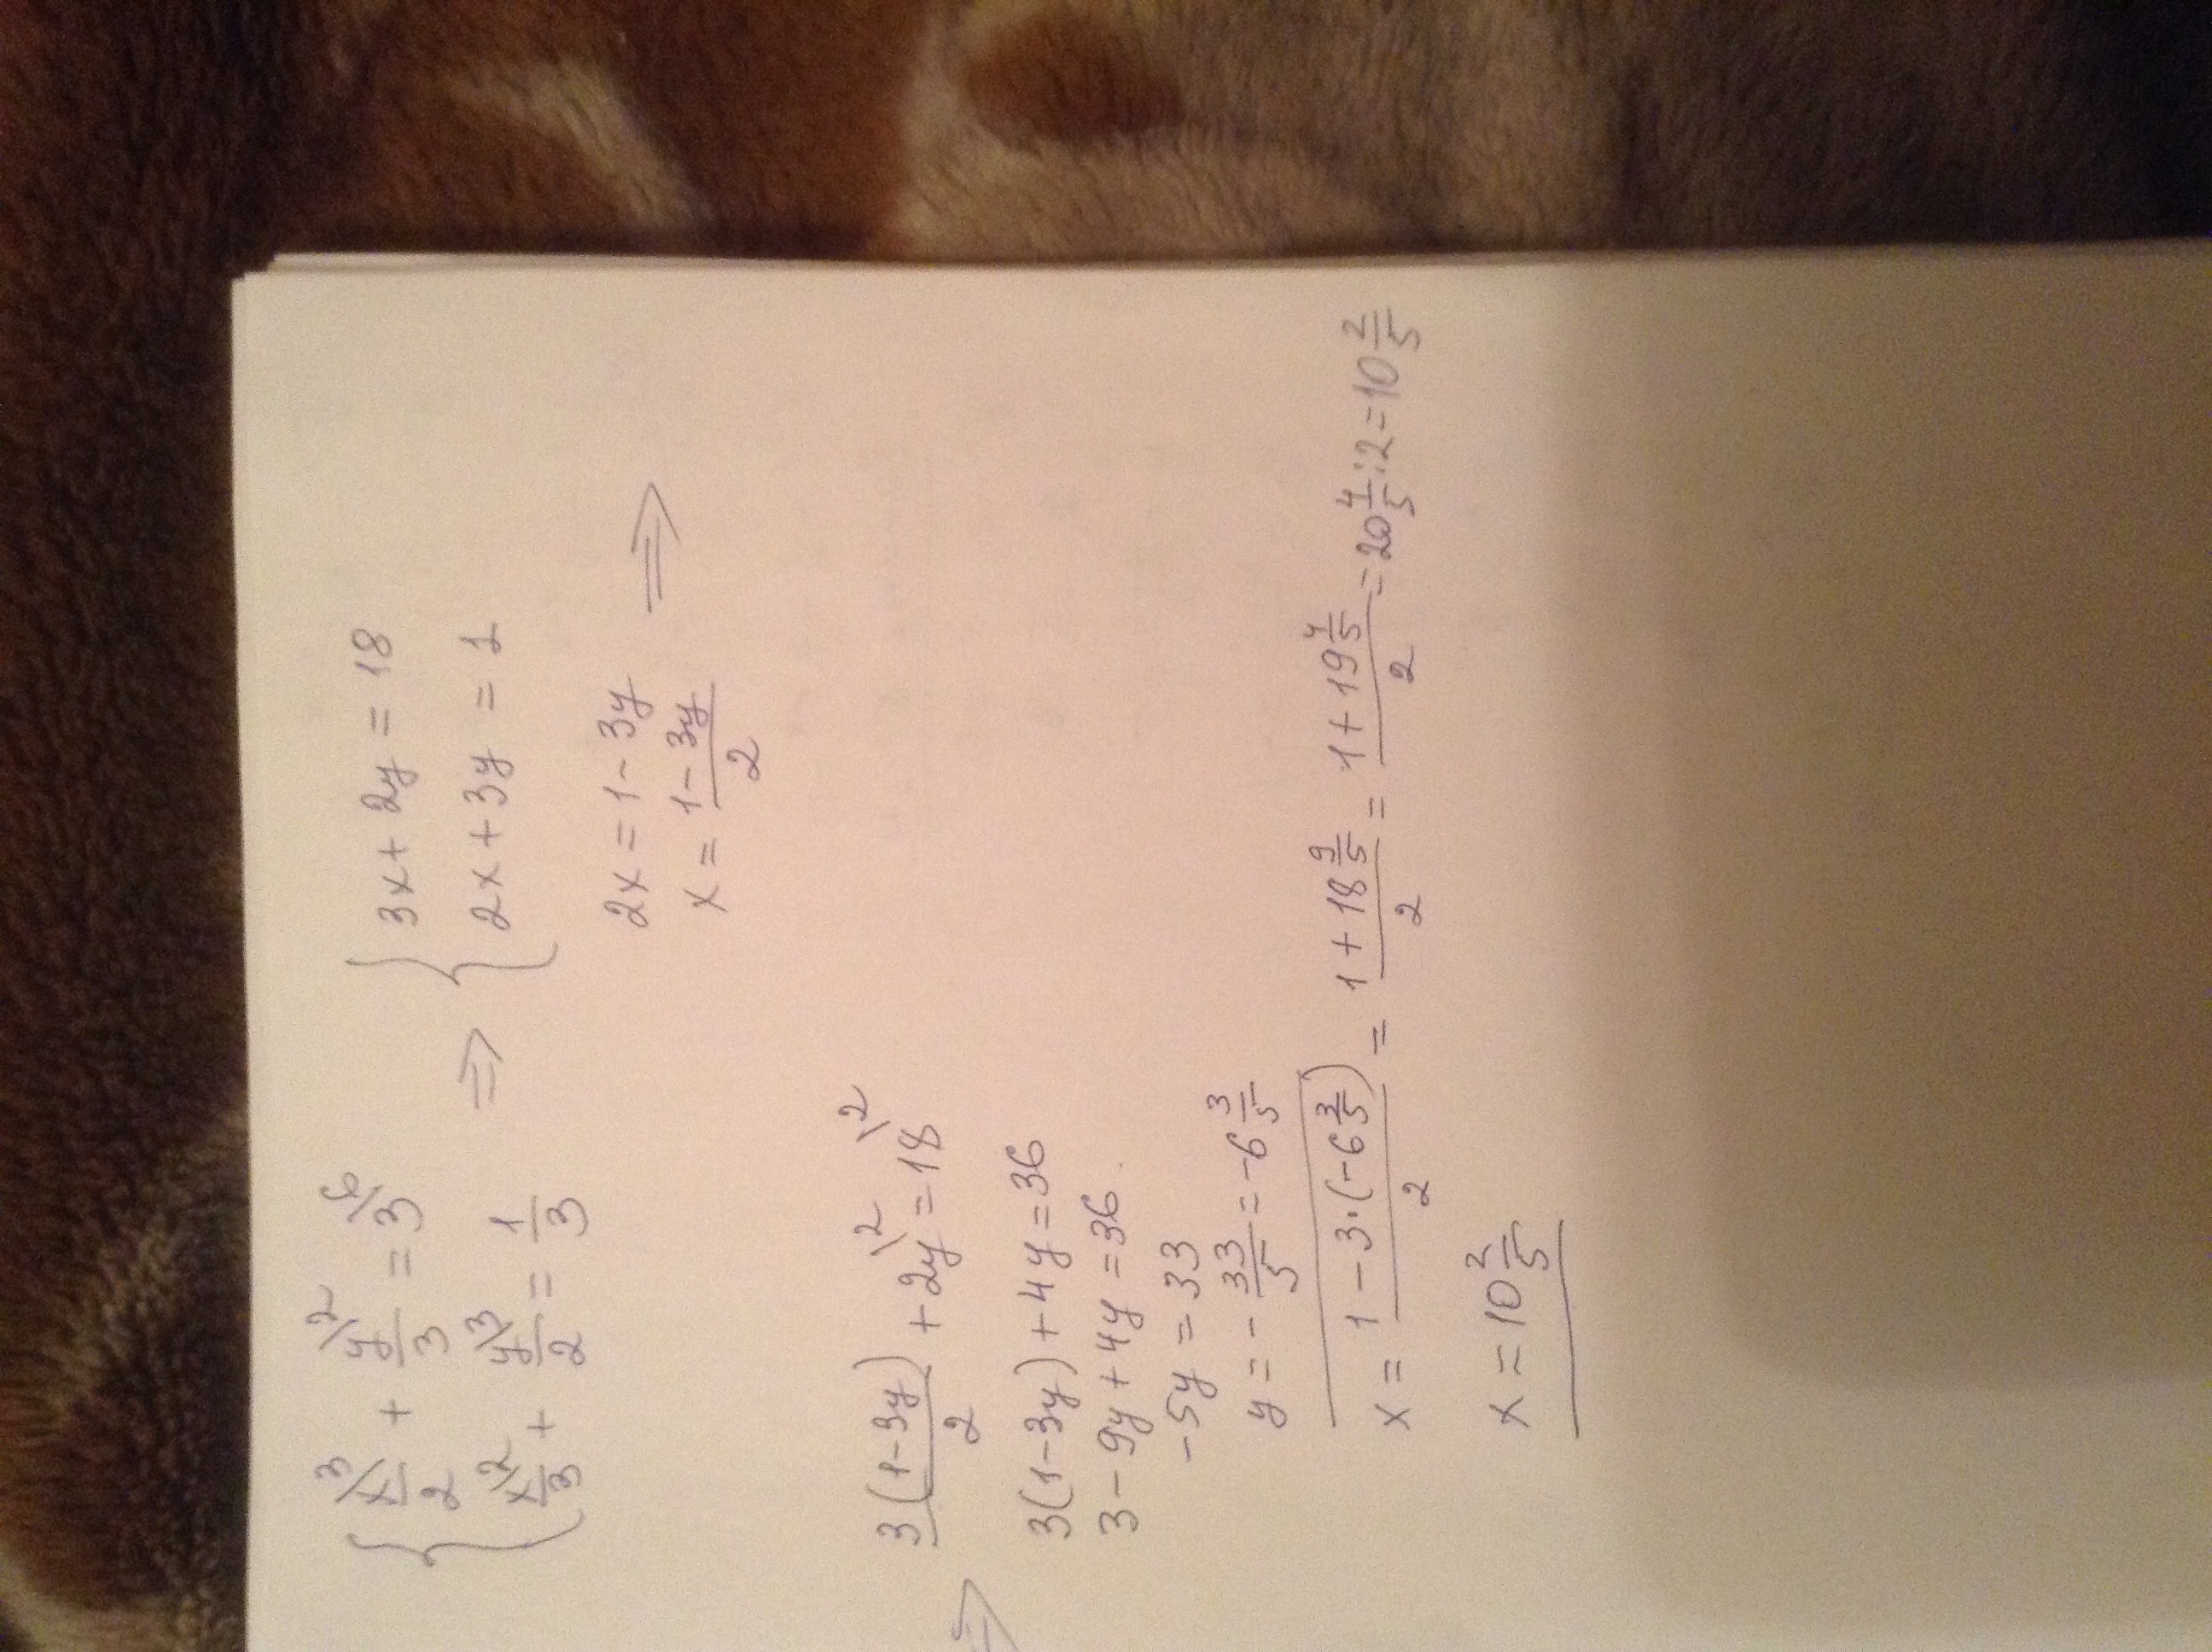 { x/2 \3 + y/3 \2 = 3 \6 ⇒ { 3x + 2y = 18
{ x/3 \2 + y/2 \3 = 1/3 { 2x + 3y = 1
2x = 1 - 3y
x = (1 - 3y)/2 ⇒
⇒ 3(1-3y)/2 + 2y \2 = 18 \2
3(1-3y) + 4y = 36
3 - 9y + 4y = 36.
-5y = 33
y = - 33/5 = -6 3/5
x = (1 - 3·(-6 3/5))/2 = (1 + 18 9/5)/2 = (1 + 19 4/5)/2 = 20 4/5 : 2 = 10 2/5
x = 10 2/5